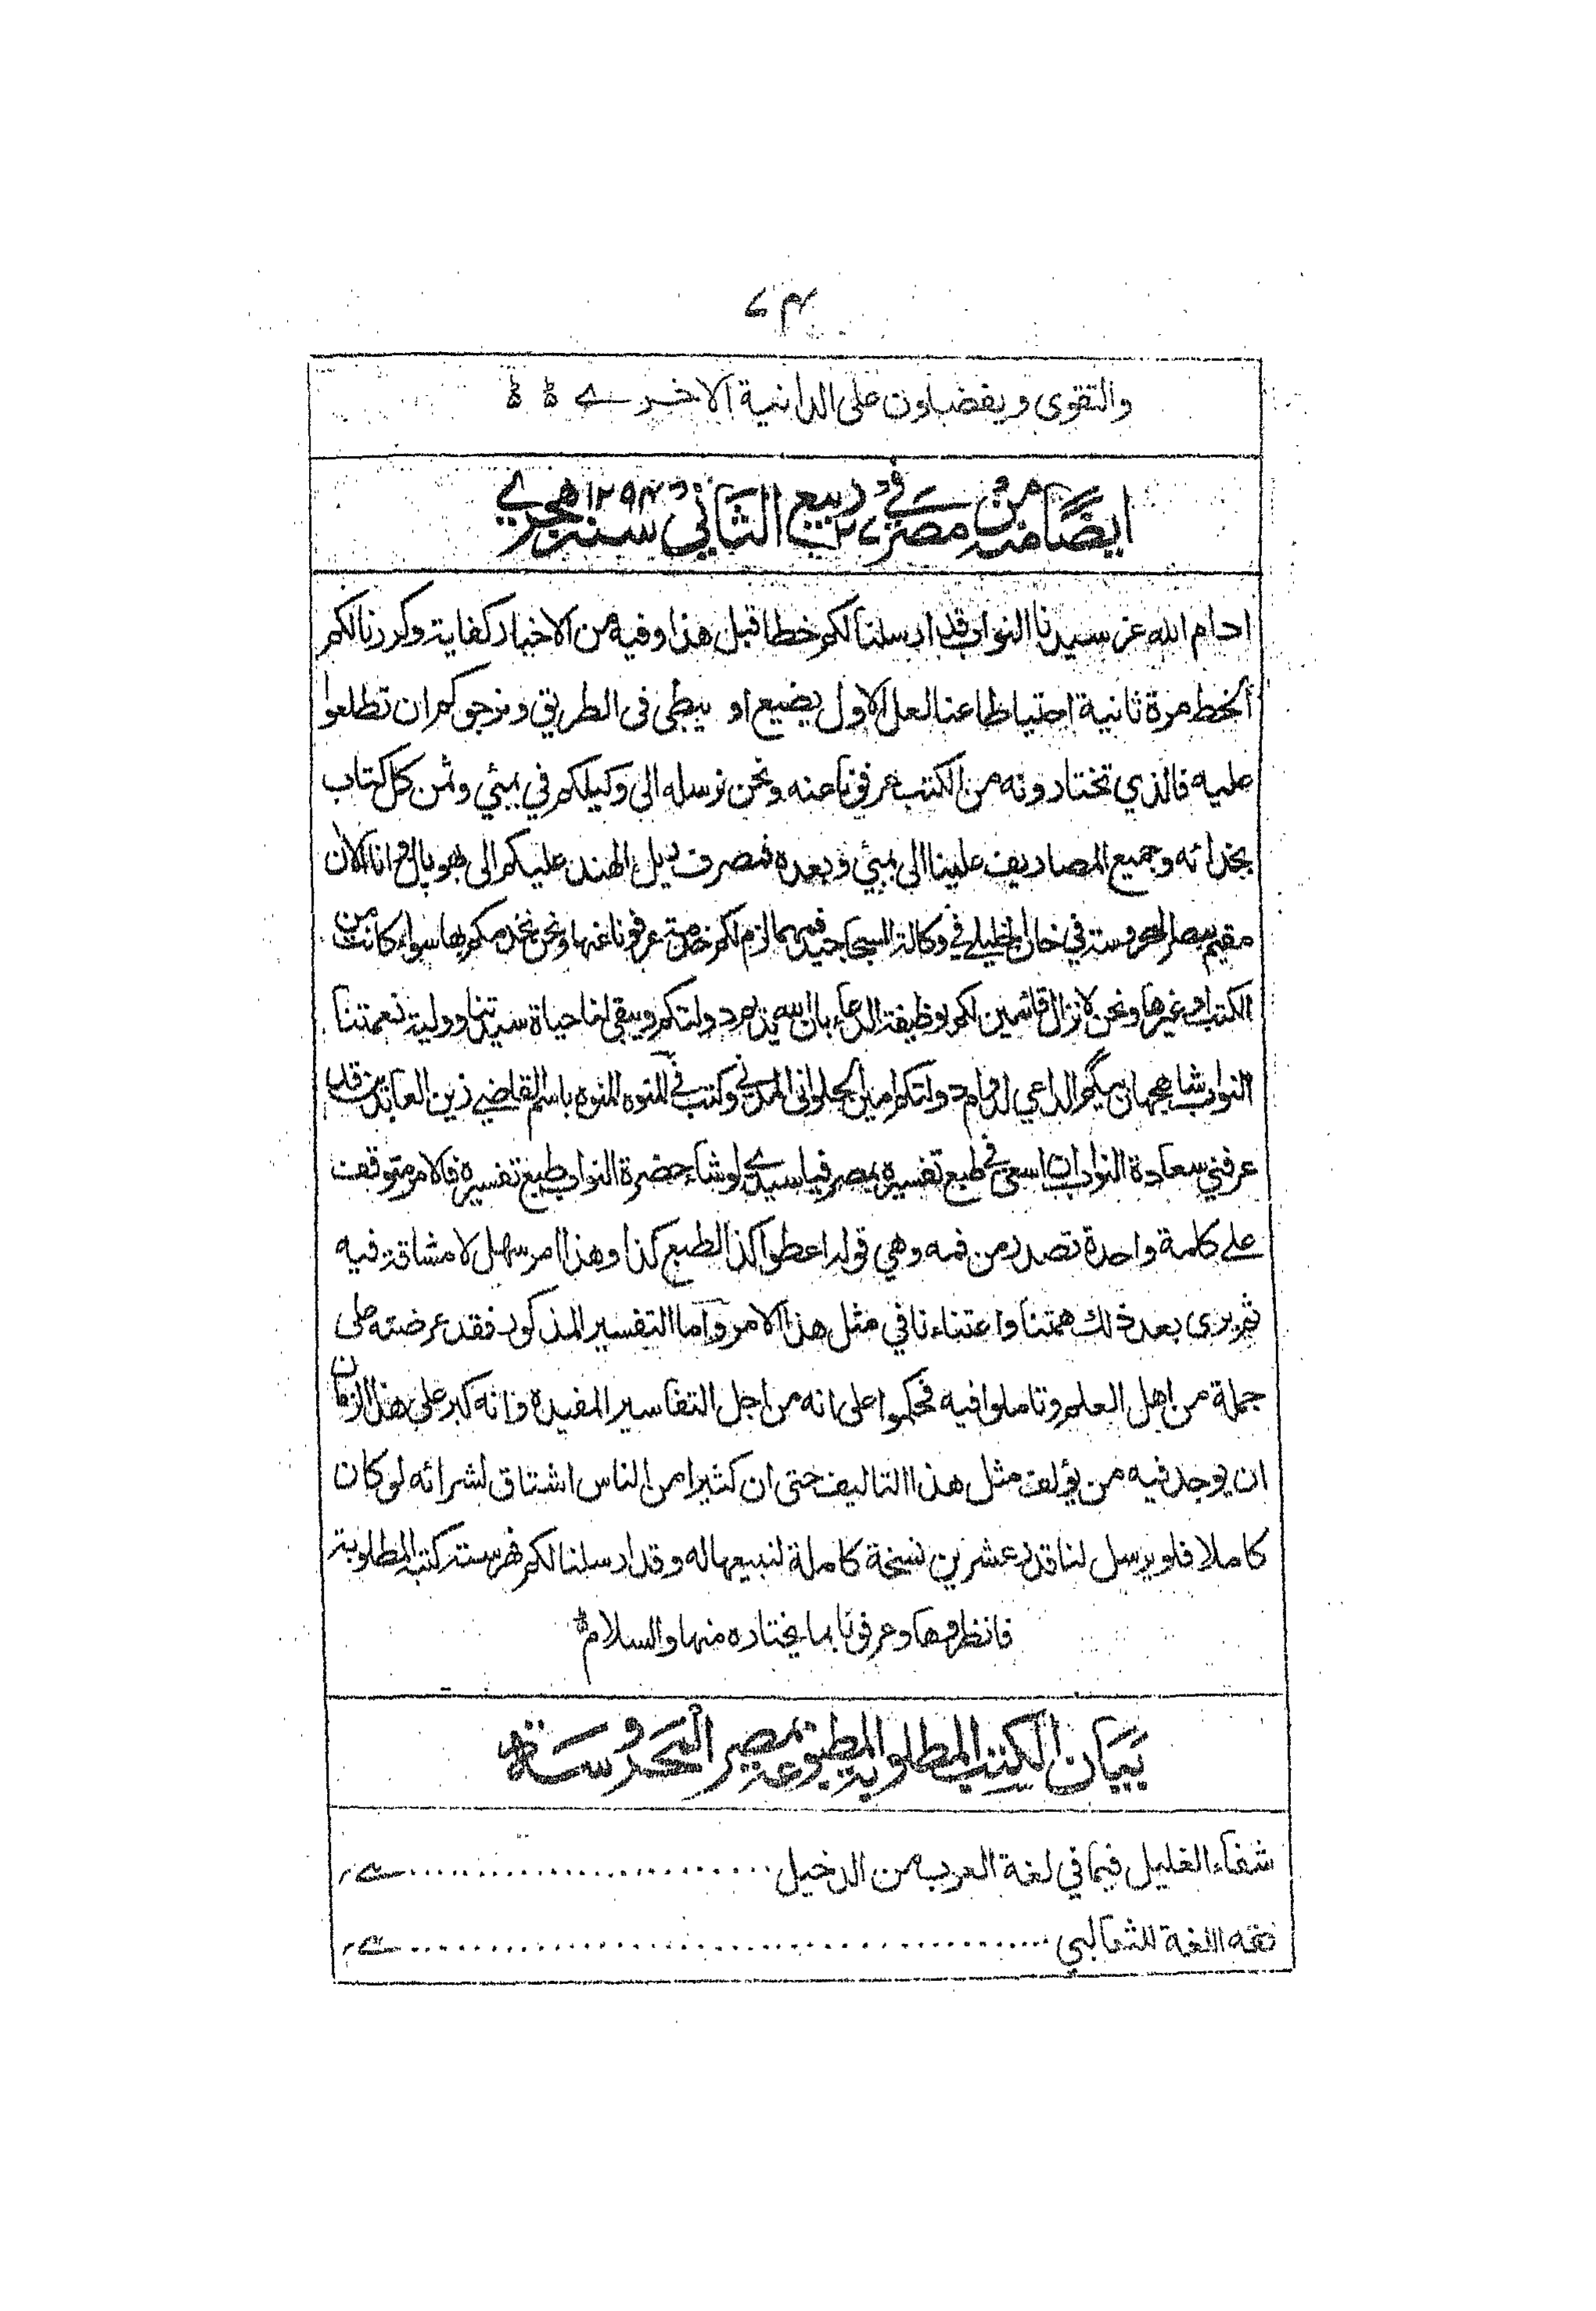 ۷۴
والتقوى ويفضلون على الدانية الاخرے
ايضًا منه من مصر في ۲۷ ربيع الثاني سنة ۱۲۹۴ هجرے
ادام الله عز سيدنا النواب قد ارسلنا لكم خطا قبل هذا وفيه من الاخبار كفاية وكررنا لكم
الخط مرة ثانية احتياطا عنا لعل الاول يضيع او يبطى فى الطريق ونرجوكم ان تطلعوا
عليه فالذي تختارونه من الكتب عرفونا عنه ونحن نرسله الى وكيلكم في بمبئي وثمن كل كتاب
بحذائه وجميع المصاريف علينا الى بمبئي وبعده فمصرف ريل الهند عليكم الى بهوپال وانا الان
مقيم بمصر المحروسة في خان الخليلے في وكالة السبحاجيد فمهما لزم لكم خدمة عرفونا عنها ونحن نخدمكم بها سواء كانت من
الكتب او غيرها ونحن لا نزال قائمين لكم بوظيفة الدعاء بان الله يديم دولتكم ويبقي لنا حياة سيدتنا وولية نعمتنا
النواب شاهجهان بيگم الداعي لدوام دولتكم امين الحلواني المدني وكتب في المنوه باسم القاضے زين العابدين قد
عرفني سعادة النواب ان اسعى في طبع تفسيره بمصر فيا سيدے لو شاء حضرة النواب طبع تفسيره فالامر متوقف
علے كلمة واحدة تصدر من فمه وهي قوله اعطوا كذا لطبع كذا وهذا امر سهل لا مشاقة فيه
ثم يرى بعد ذلك همتنا واعتناءنا في مثل هذا الامر واما التفسير المذكور فقد عرضته على
جملة من اهل العلم وتاملوا فيه فحكموا على انه من اجل التفاسير المفيدة وانه كبر على هذا الزمان
ان يوجد فيه من يؤلف مثل هذا التاليف حتى ان كثيرا من الناس اشتاق لشرائه لو كان
كاملا فلو يرسل لنا قدر عشرين نسخة كاملة لنبيعها له وقد ارسلنا لكم فهرسة كتب المطلوبة
فانظروها وعرفونا بما يختاره منها والسلام
بيان الكتب المطلوبة المطبوعة بمصر المحروسة
شفاء الغليل فيما في لغة العرب من الدخيل
فقه اللغة للثعالبي